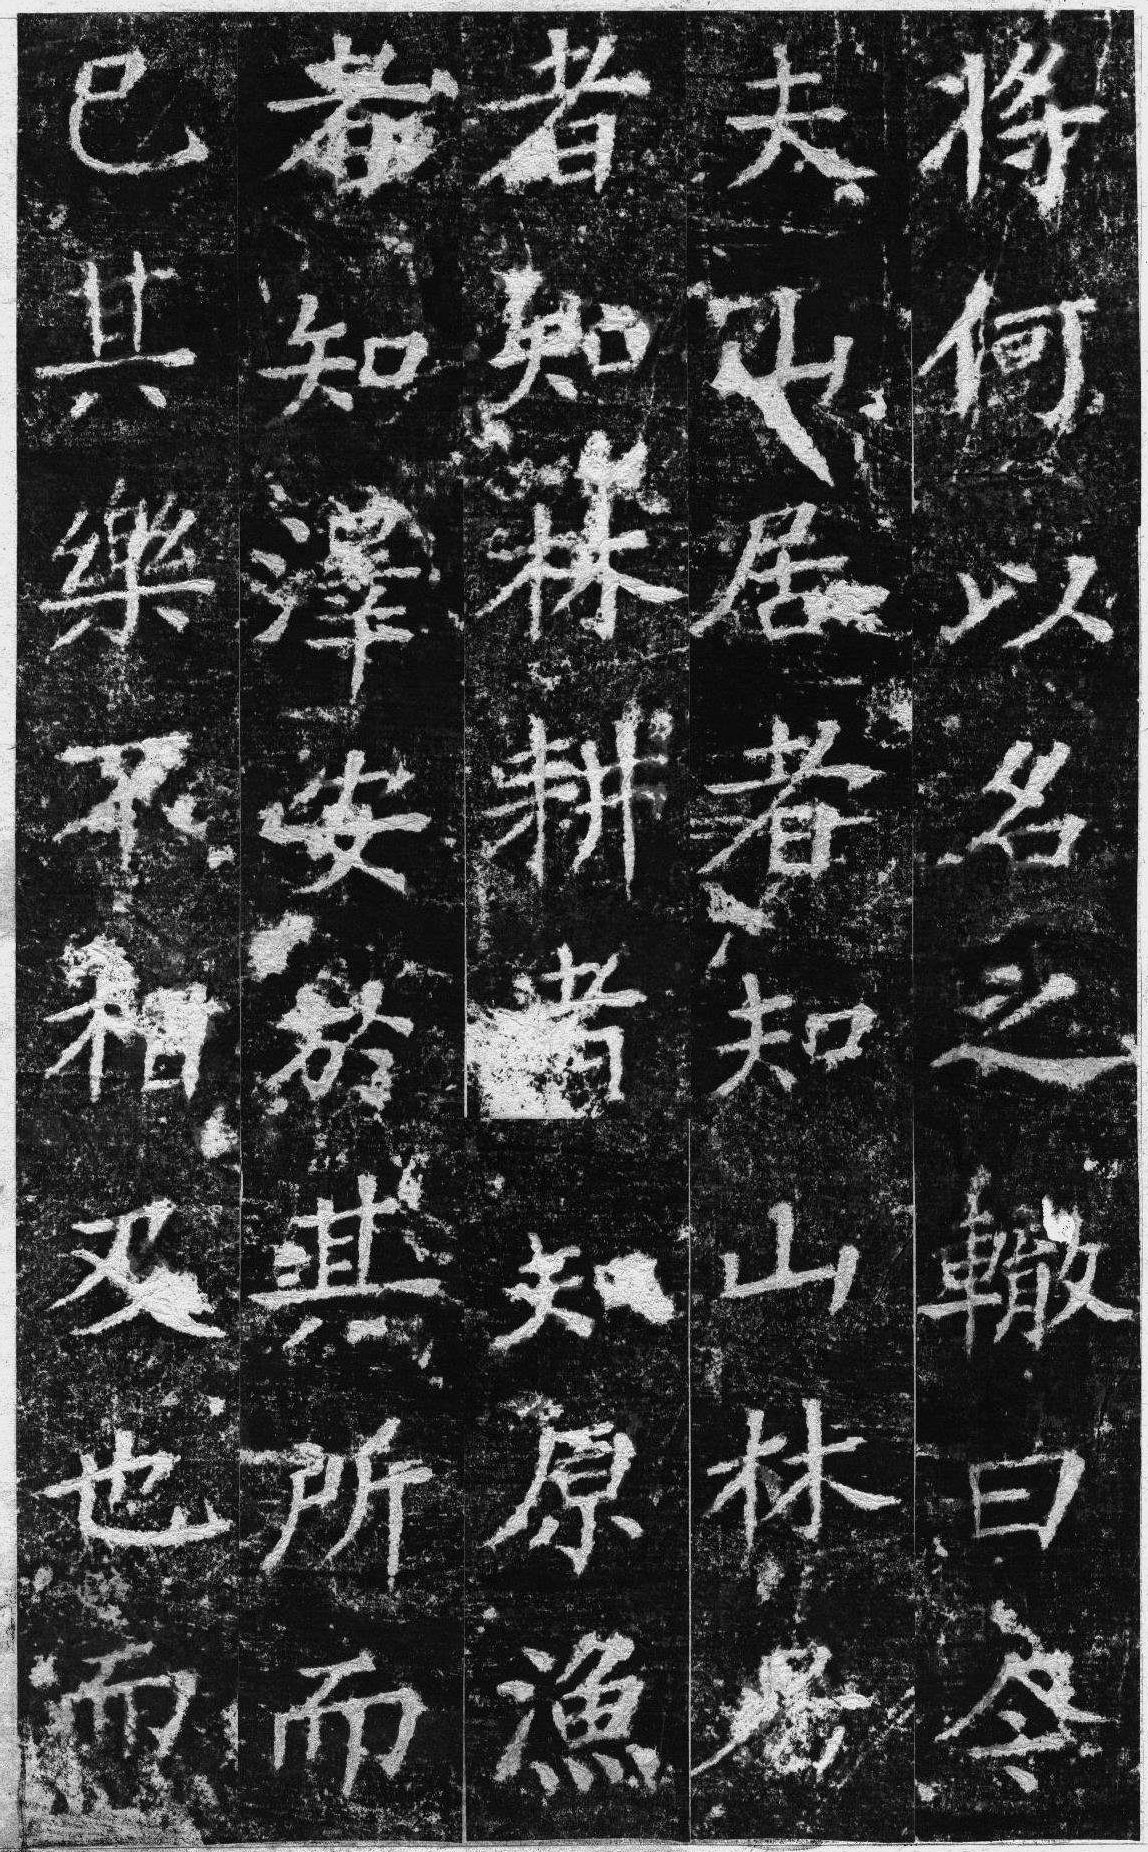 將何以名之轍曰今
夫山居者知山林居
者知林耕者知原漁
者知澤安於其所而
已其樂不相及也而